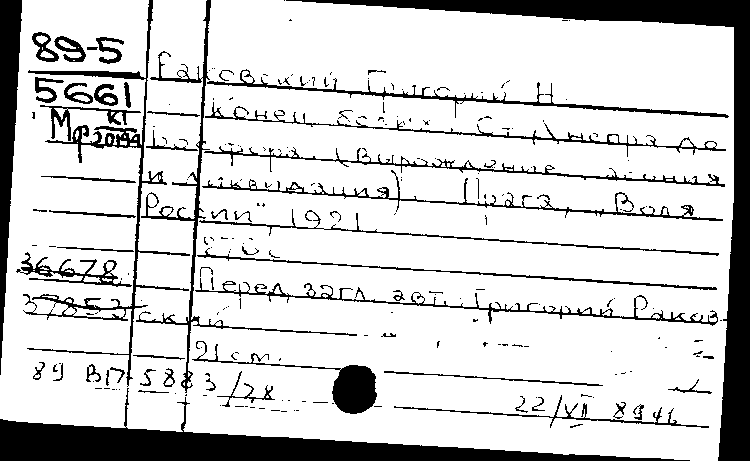 89-5
Раковский, Григорий Н
5661
Конец белых. От Днепра до
Мф К1 20194
Босфора. (Вырождение, агония
и ликвидация). Прага, "Воля
России", 1921.
270 с
36678
Перед загл. авт.: Григорий Раков-
37853
ский
21 см.
89 ВП-5883/28
22/VII